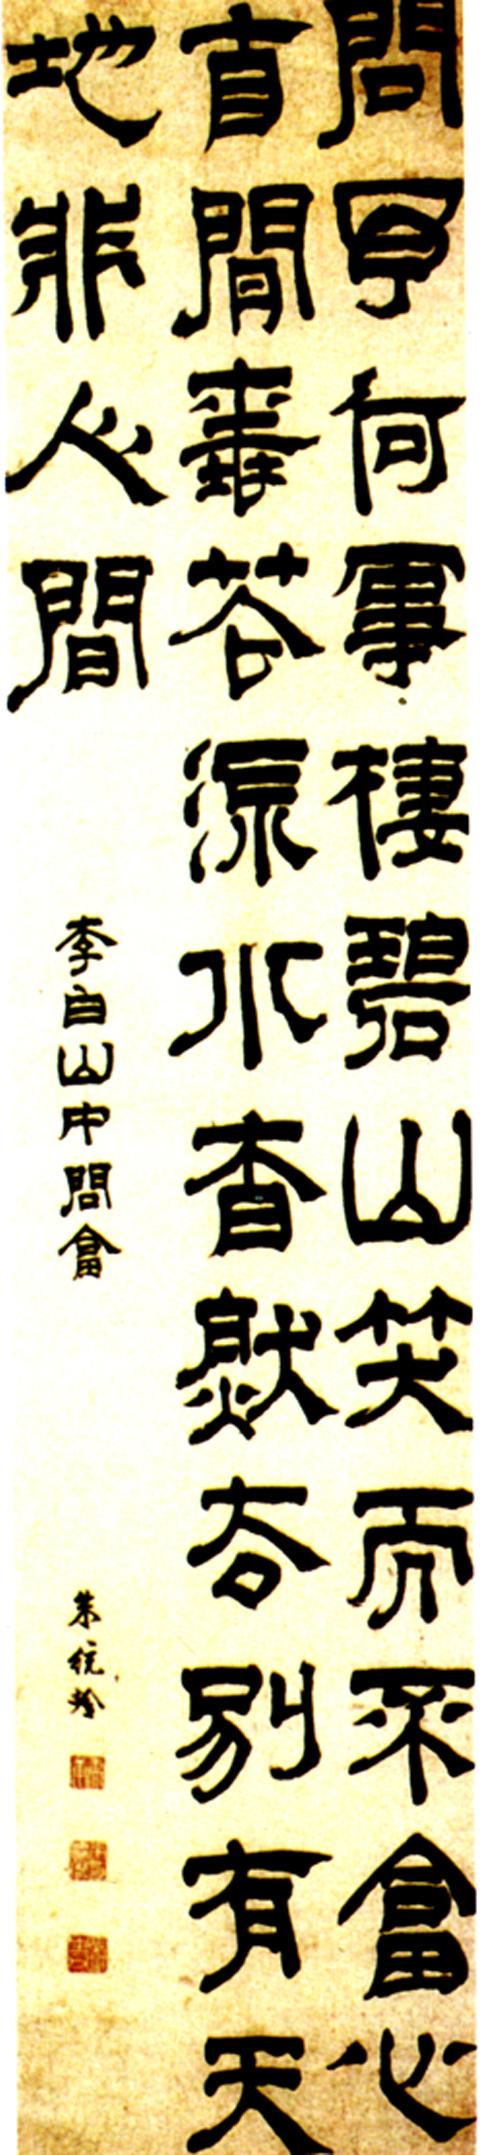 問予何事棲碧山笑而不畣心
自閒桃花流水杳然去別有天
地非人間
李白山中問畣
朱統